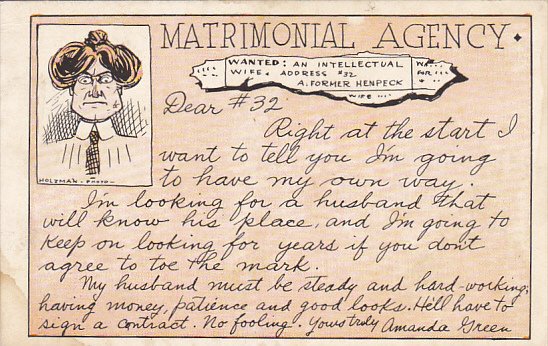 MATRIMONIAL AGENCY.
WANTED: AN INTELLECTUAL
WIFE. ADDRESS #32
A. FORMER HENPECK
WA..
FOR
WIFE
Dear #32
Right at the start I
want to tell you I'm going
to have my own way.
I'm looking for a husband that
will know his place, and I'm going to
keep on looking for years if you don't
agree to toe the mark.
My husband must be steady and hard-working,
having money, patience and good looks. He'll have to
sign a contract. No fooling. Yours truly Amanda Green
HOLZMAN - PHOTO -